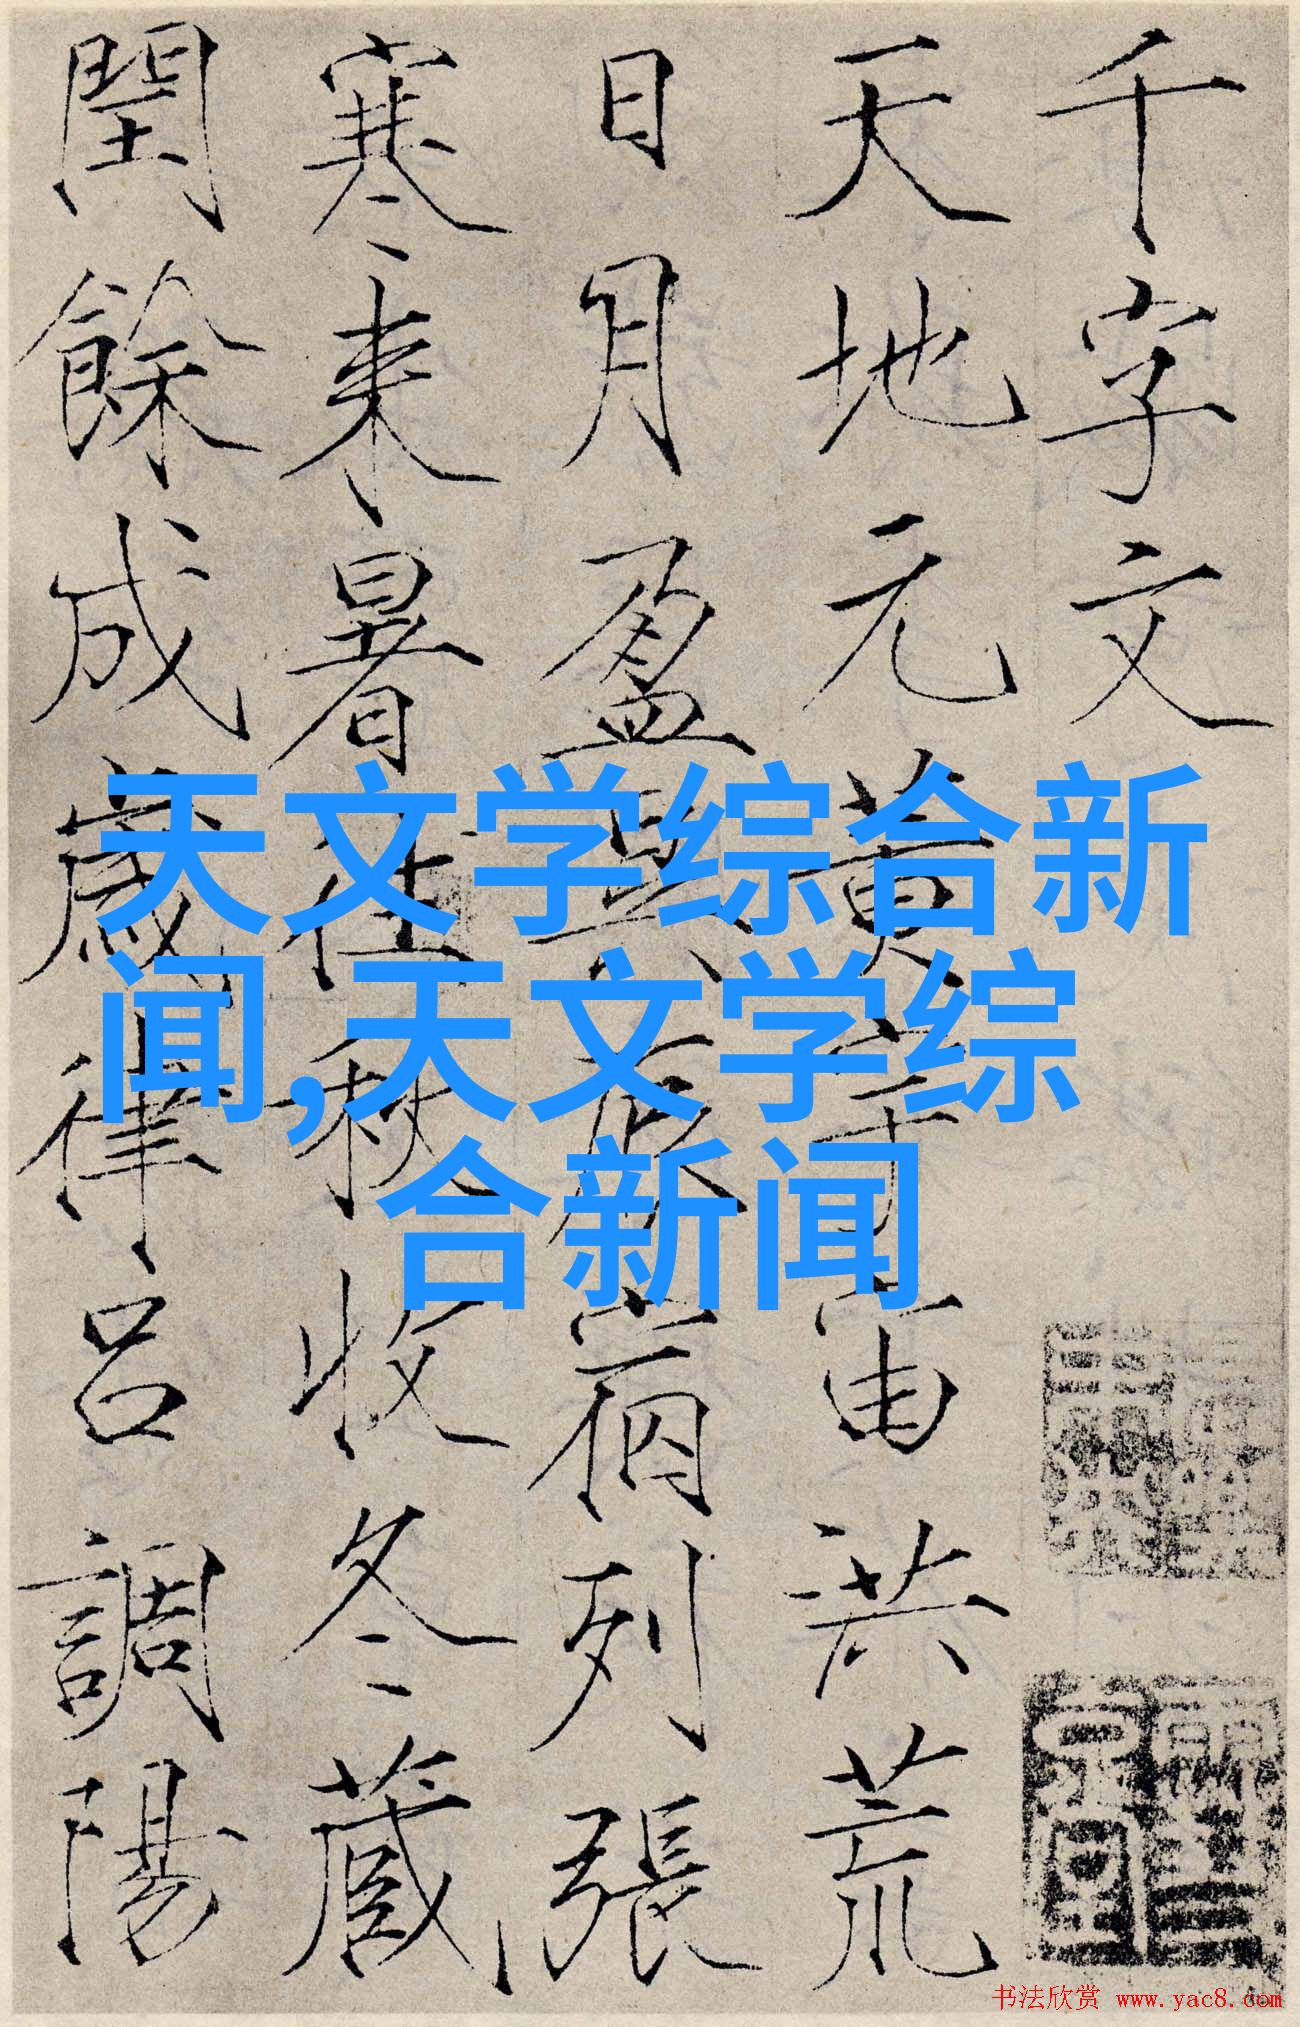 千字文
天地元黄宇宙洪荒
日月盈昃辰宿列張
寒来暑往秋收冬蔵
閏餘成歲律呂調陽
天文学综合新
闻,天文学综
合新闻
书法欣赏 www.yac8.com